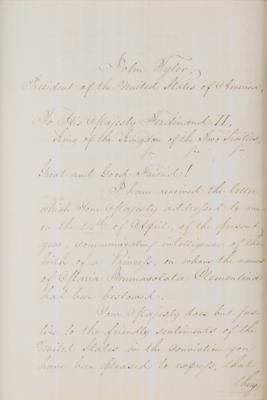 John Tyler,
President of the United States of America,
To His Majesty Ferdinand II,
King of the Kingdom of the Two Sicilies,
&c &c &c
Great and Good Friend!
I have received the letter
which Your Majesty addressed to me
on the 14th of April, of the present
year, communicating intelligence of the
birth of a Princess, on whom the names
of Maria Immaculata Clementina
had been bestowed.
Your Majesty does but jus-
tice to the friendly sentiments of the
United States in the conviction you
have been pleased to express, that
they